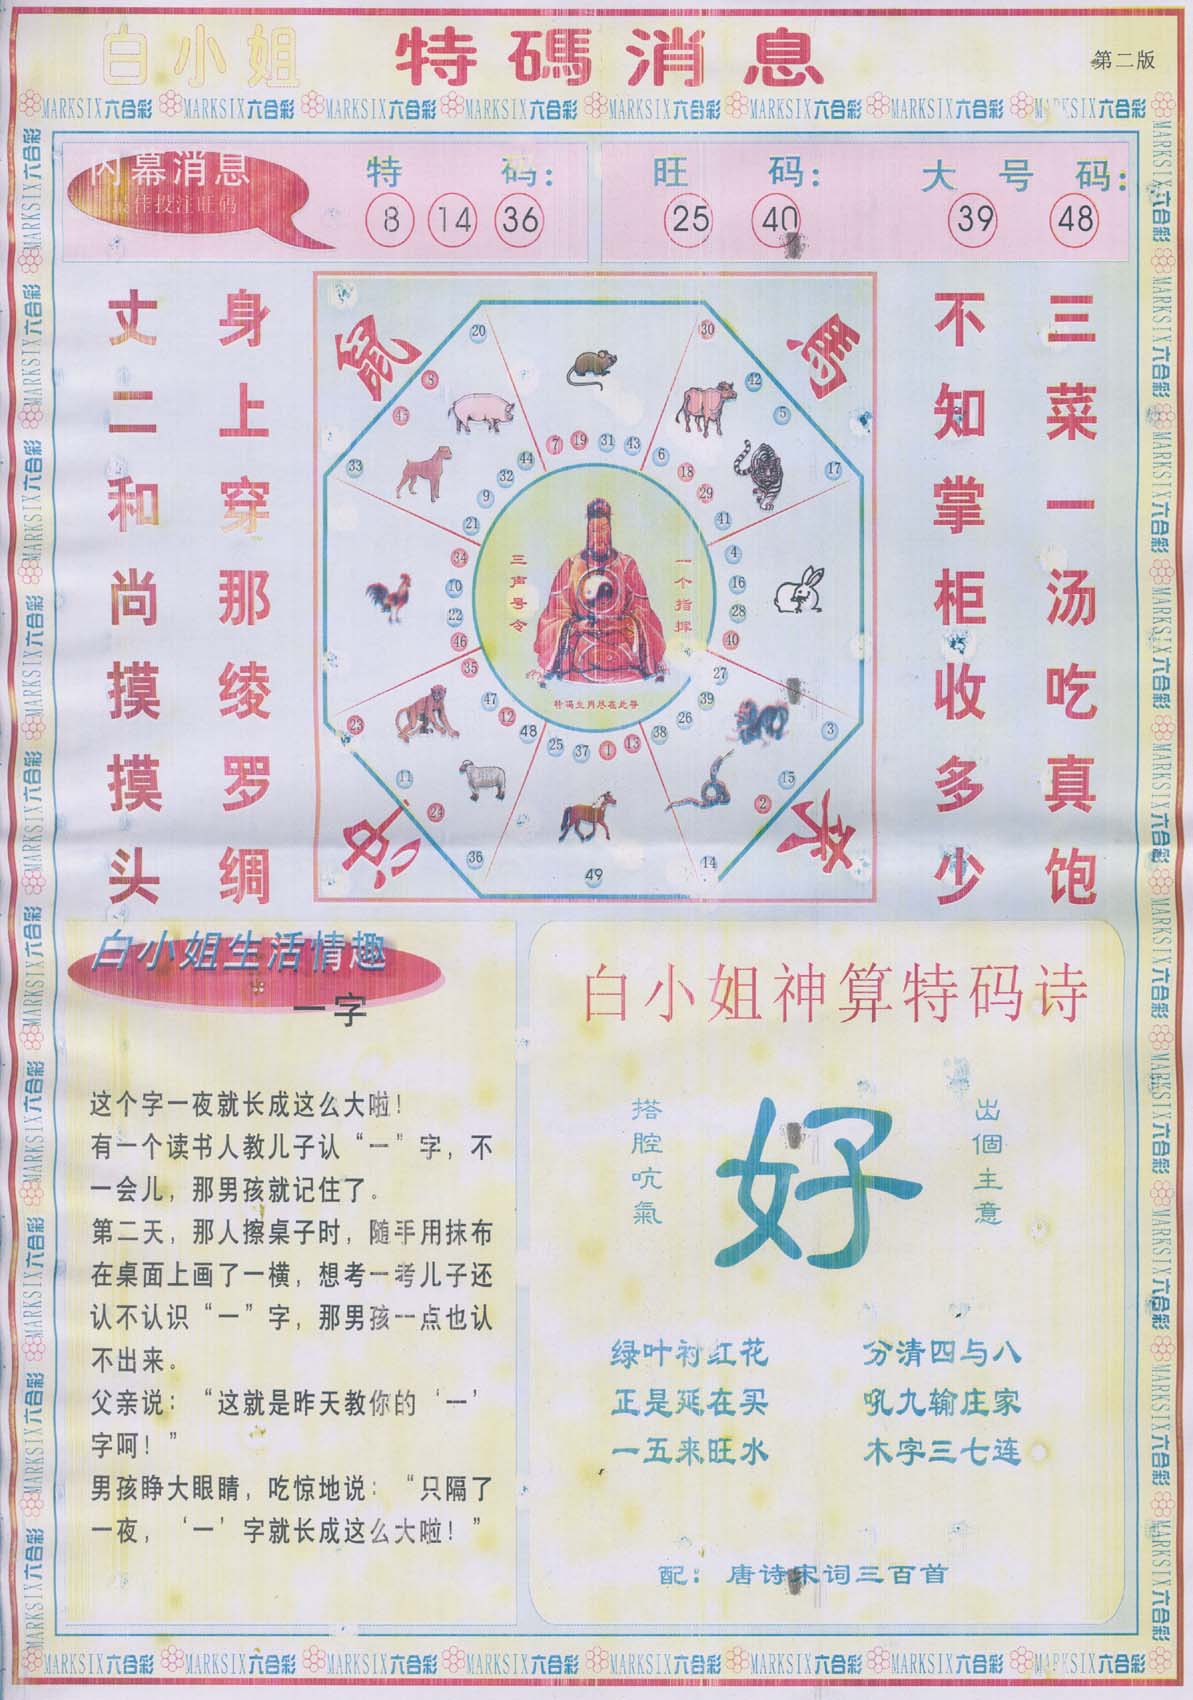 白小姐 特碼消息
第二版
MARKSIX六合彩 MARKSIX六合彩 MARKSIX六合彩 MARKSIX六合彩 MARKSIX六合彩 MARKSIX六合彩 MARKSIX六合彩 MARKSIX六合彩
内幕消息
最佳投注旺码
特 码：
8 14 36
旺 码：
25 40
大 号 码：
39 48
三菜一汤吃真饱
不知掌柜收多少
身上穿那绫罗绸
丈二和尚摸摸头
鼠
馬
20
30
8
42
45
5
33
17
7 19 31 43
44
6
32
18
9
29
21
41
34
4
10
16
22
28
46
40
35
27
47
39
12
26
48
38
25 37 1 13
23
3
11
15
24
2
36
14
49
三声号令
一个指挥
特码生肖尽在此等
白小姐生活情趣
一字
这个字一夜就长成这么大啦！
有一个读书人教儿子认“一”字，不
一会儿，那男孩就记住了。
第二天，那人擦桌子时，随手用抹布
在桌面上画了一横，想考一考儿子还
认不认识“一”字，那男孩一点也认
不出来。
父亲说：“这就是昨天教你的‘一’
字呵！”
男孩睁大眼睛，吃惊地说：“只隔了
一夜，‘一’字就长成这么大啦！”
白小姐神算特码诗
搭腔吭氣
好
出個主意
绿叶衬红花 分清四与八
正是延在买 吼九输庄家
一五来旺水 木字三七连
配：唐诗宋词三百首
MARKSIX六合彩 MARKSIX六合彩 MARKSIX六合彩 MARKSIX六合彩 MARKSIX六合彩 MARKSIX六合彩 MARKSIX六合彩 MARKSIX六合彩